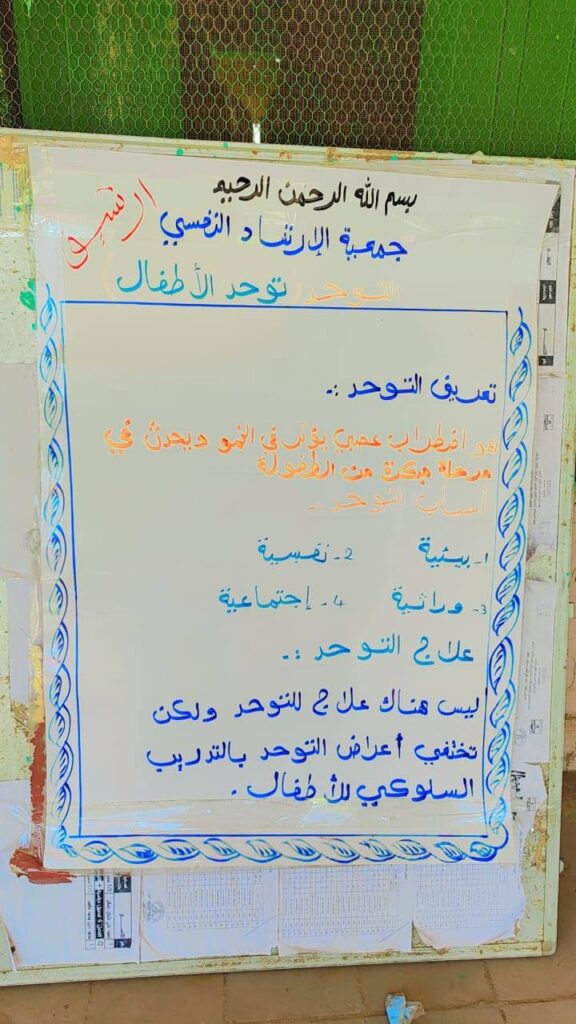 بسم الله الرحمن الرحيم
ارشيف
جمعية الإرشاد النفسي
(التوحد) توحد الأطفال
تعريف التوحد :-
هو اضطراب عصبي يؤثر في النمو ويحدث في
مرحلة مبكرة من الطفولة
أسباب التوحد :-
1- بيئية 2- نفسية
3- وراثية 4- إجتماعية
علاج التوحد :-
ليس هناك علاج للتوحد ولكن
تختفي أعراض التوحد بالتدريب
السلوكي للأطفال .